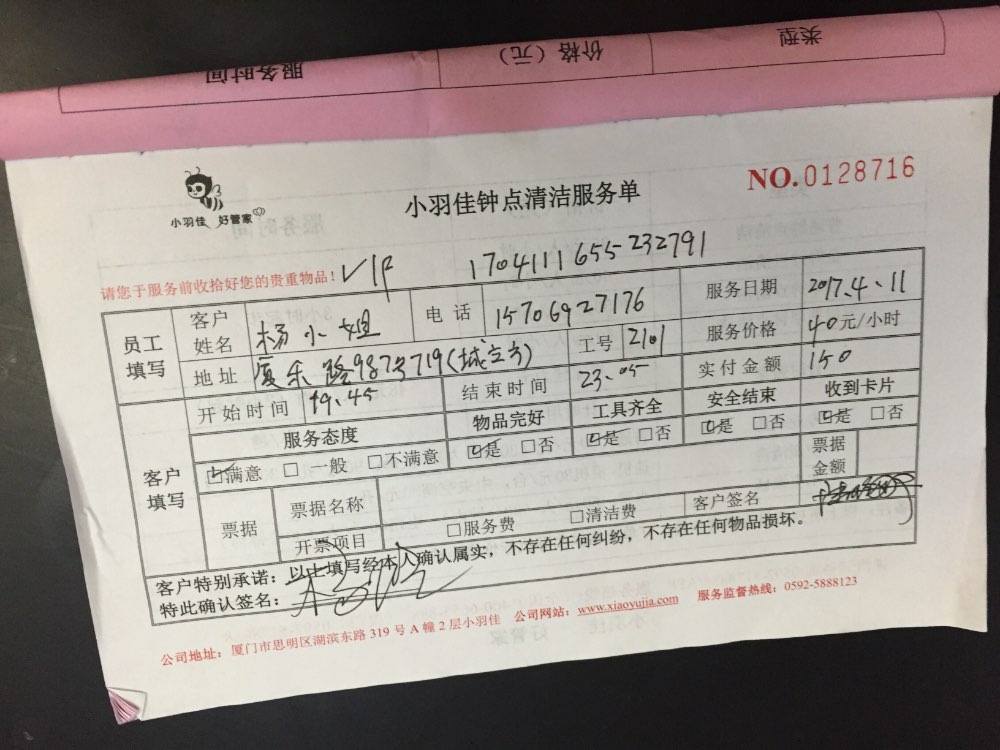 服务时间 价格（元） 类型
小羽佳 好管家
小羽佳钟点清洁服务单
NO.0128716
请您于服务前收拾好您的贵重物品！VIP 1704111655232791
员工填写
客户姓名 杨小姐 电话 15706927176 服务日期 2017.4.11
地址 厦禾路987号719(城立方) 工号 2101 服务价格 40元/小时
开始时间 19.45 结束时间 23.05 实付金额 150
客户填写
服务态度 物品完好 工具齐全 安全结束 收到卡片
☑满意 □一般 □不满意 ☑是 □否 ☑是 □否 ☑是 □否 ☑是 □否
票据 票据名称 票据金额
开票项目 □服务费 □清洁费 客户签名
客户特别承诺：以上填写经本人确认属实，不存在任何纠纷，不存在任何物品损坏。
特此确认签名：
公司地址：厦门市思明区湖滨东路 319 号 A 幢 2 层小羽佳 公司网站：www.xiaoyujia.com 服务监督热线：0592-5888123